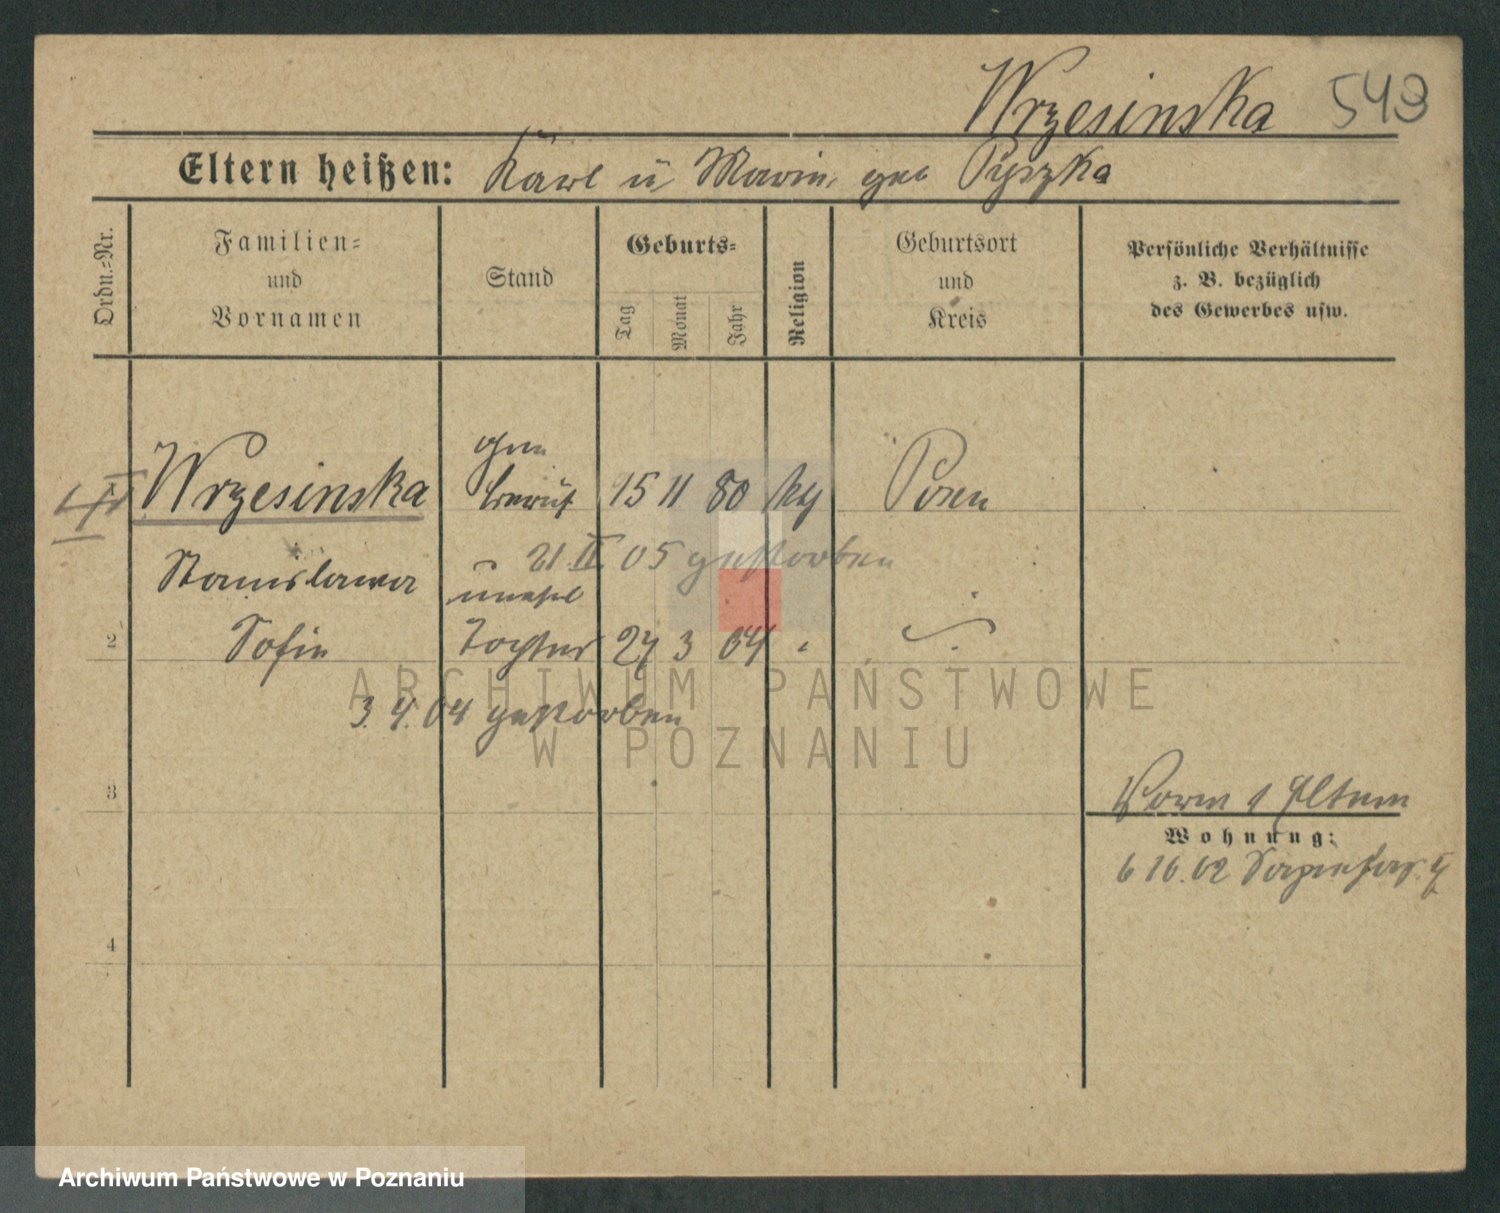 Wrzesinska 543
Eltern heißen: Karl u Marie geb Pyszka
Ordn.-Nr.
Familien-
und
Vornamen
Stand
Geburts-
Tag
Monat
Jahr
Religion
Geburtsort
und
Kreis
Persönliche Verhältnisse
z. B. bezüglich
des Gewerbes usw.
Wrzesinska
ohne
Beruf
15 11 80 kg Posen
21. II. 05 gestorben
Stanislawa
unehel
2 Sofie Tochter 27 3 04
3. 4. 04 gestorben
ARCHIWUM PAŃSTWOWE
W POZNANIU
3
Eltern
Wohnung:
6 10. 02
4
Archiwum Państwowe w Poznaniu